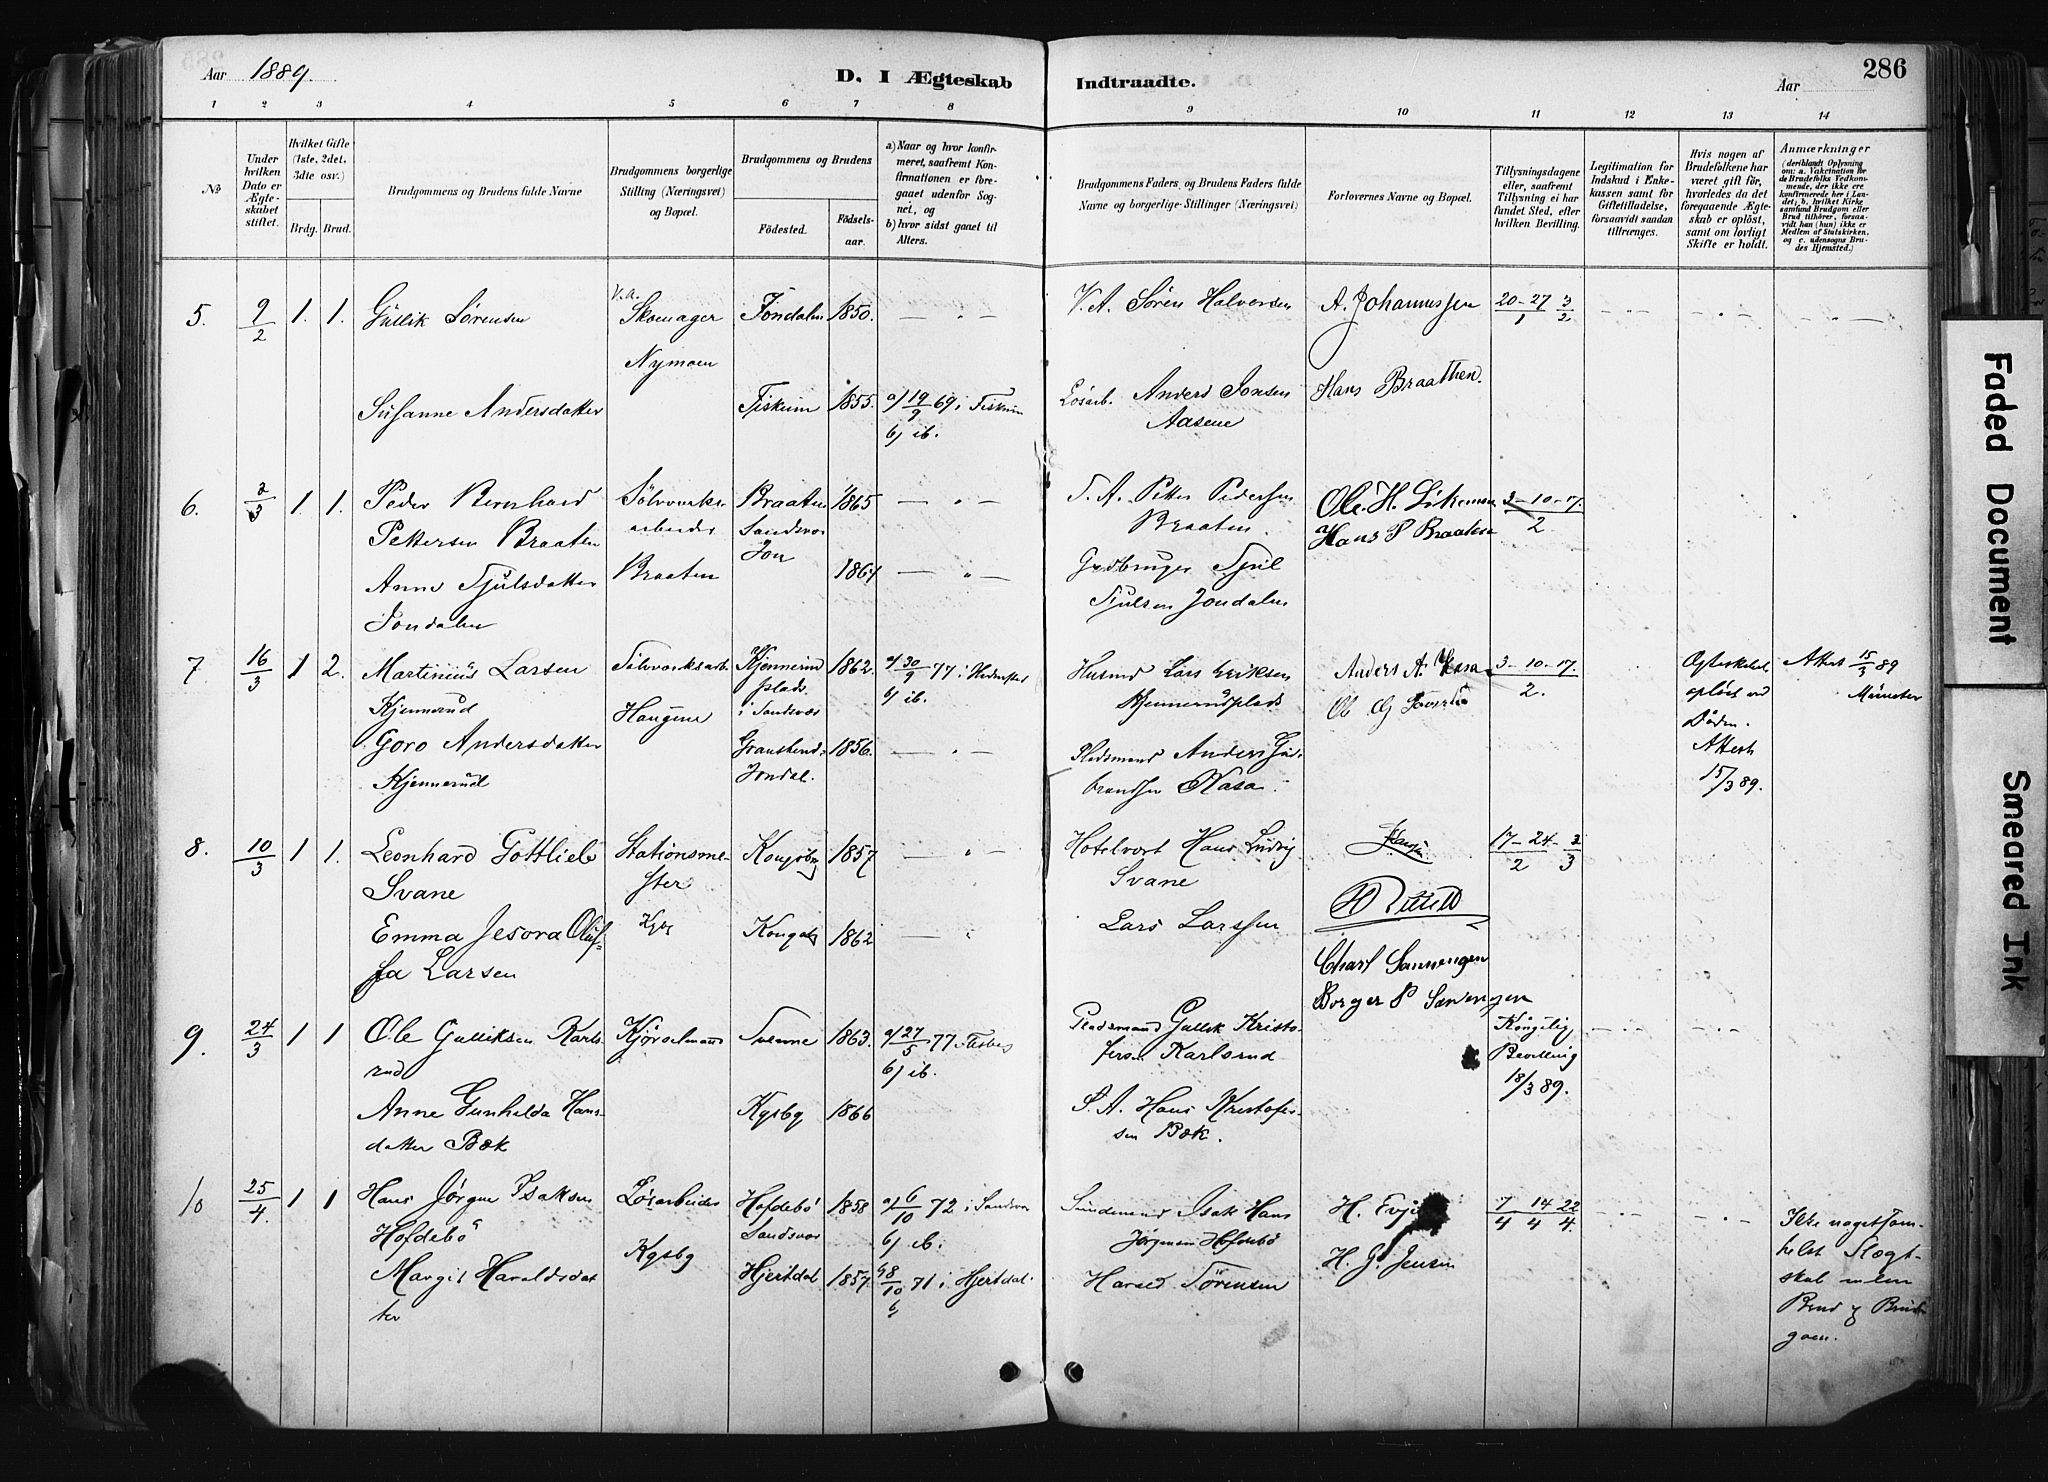 Aar 1889.
D. I Ægteskab
Indtraadte.
Aar
286
1 2 3 4 5 6 7 8 9 10 11 12 13 14
No
Under hvilken Dato er Ægteskabet stiftet.
Hvilket Gifte (1ste, 2det, 3dte osv.)
Brdg. Brud.
Brudgommens og Brudens fulde Navne
Brudgommens borgerlige Stilling (Næringsvei) og Bopæl.
Brudgommens og Brudens
Fødested.
Fødselsaar.
a) Naar og hvor konfirmeret, saafremt Konfirmationen er foregaaet udenfor Sognet, og
b) hvor sidst gaaet til Alters.
Brudgommens Faders og Brudens Faders fulde Navne og borgerlige Stillinger (Næringsvei)
Forlovernes Navne og Bopæl.
Tillysningsdagene eller, saafremt Tillysning ei har fundet Sted, efter hvilken Bevilling.
Legitimation for Indskud i Enkekassen samt for Giftetilladelse, forsaavidt saadan tiltrænges.
Hvis nogen af Brudefolkene har været gift før, hvorledes da det foregaaende Ægteskab er opløst, samt om lovligt Skifte er holdt.
Anmærkninger
(deriblandt Oplysning om: a. Vakcination for de Brudefolks Vedkommende, der ikke ere konfirmerede her i Landet; b. hvilket Kirkesamfund Brudgom eller Brud tilhører, forsaavidt han (hun) ikke er Medlem af Statskirken, og c. udensogns Brudes Hjemsted.)
5. 9/2 1. 1. Gullik Sørensen V.a. Skomager Jondalen 1850. — " — V. A. Søren Halvorsen A. Johannessen 20-27 3/2
1
Nymoen
Susanne Andersdatter Fiskum 1855. a) 19/9 69 i Fiskum
b) ib.
Løsarb. Anders Jonsen
Aasene
Hans Braathen.
6. 3/3 1. 1. Peder Bernhard Sølvverks- Braaten 1865 — " — S. A. Petter Pedersen
Pettersen Braaten arbeider Sandsvær Braaten
Jon
Hans P Braaten
3-10-17.
2
Anne Tjulsdatter Braaten 1864 — " — Grdbruger Tjul
Jondalen
Tjulsen Jondalen
7. 16/3 1 2. Martinius Larsen Sølvverksarb. Kjennerud 1862. a) 30/9 77 i Hedensted
plads.
b) ib.
Kjennerud Haugene i Sandsvær
Husmd Lars Eriksen
Kjennerudplads
Anders A.
3-10-17.
2.
Ægteskabet
opløst ved
Døden.
Attest
15/3 89.
Attest 15/3 89
Goro Andersdatter Granshered 1856. — " —
Kjennerud Jondal.
Pladsmand Anders Gud-
brandsen
8. 10/3 1 1. Leonhard Gottlieb Stationsme- Kongsberg 1857 — " —
Svane ster
Hotelvært Hans Ludvig
Svane
17-24-3
2 3
Emma Jesora Oluf- Kongsbg 1862 — " — Lars Larssen
fa Larsen
Charl Sannengen
Borger P Sanengen
9. 24/3 1 1 Ole Gulliksen Karls- Kjørselmand Svenne 1863. a) 27/5 77 Flesberg
rud b) ib.
Pladsmand Gullik Kristo-
fersen Karlsrud
Kongelig
Bevilling
18/3 89.
Anne Gunhilda Hans- Kgsbg 1866
datter Bæk
S. A. Hans Kristofer-
sen Bæk.
10 25/4. 1 1 Hans Jørgen Isaksen Løsarbeider Hofdebø 1858 a) 6/10 72 i Sandsvær
Hofdebø Sandsvær b) ib.
Kgsbg
Isak Hans
Jørgensen Hofdebø
H. Evj
7 14 22
4 4 4.
Margit Haraldsdat Hjertdal 1857 18/10 71 i Hjertdal.
ter b)
Harald Sørensen
H. G. Jensen
Ikke noget som
helst Slægt-
skab mlem
Brud og Brud
gom.
Faded Document
Smeared Ink